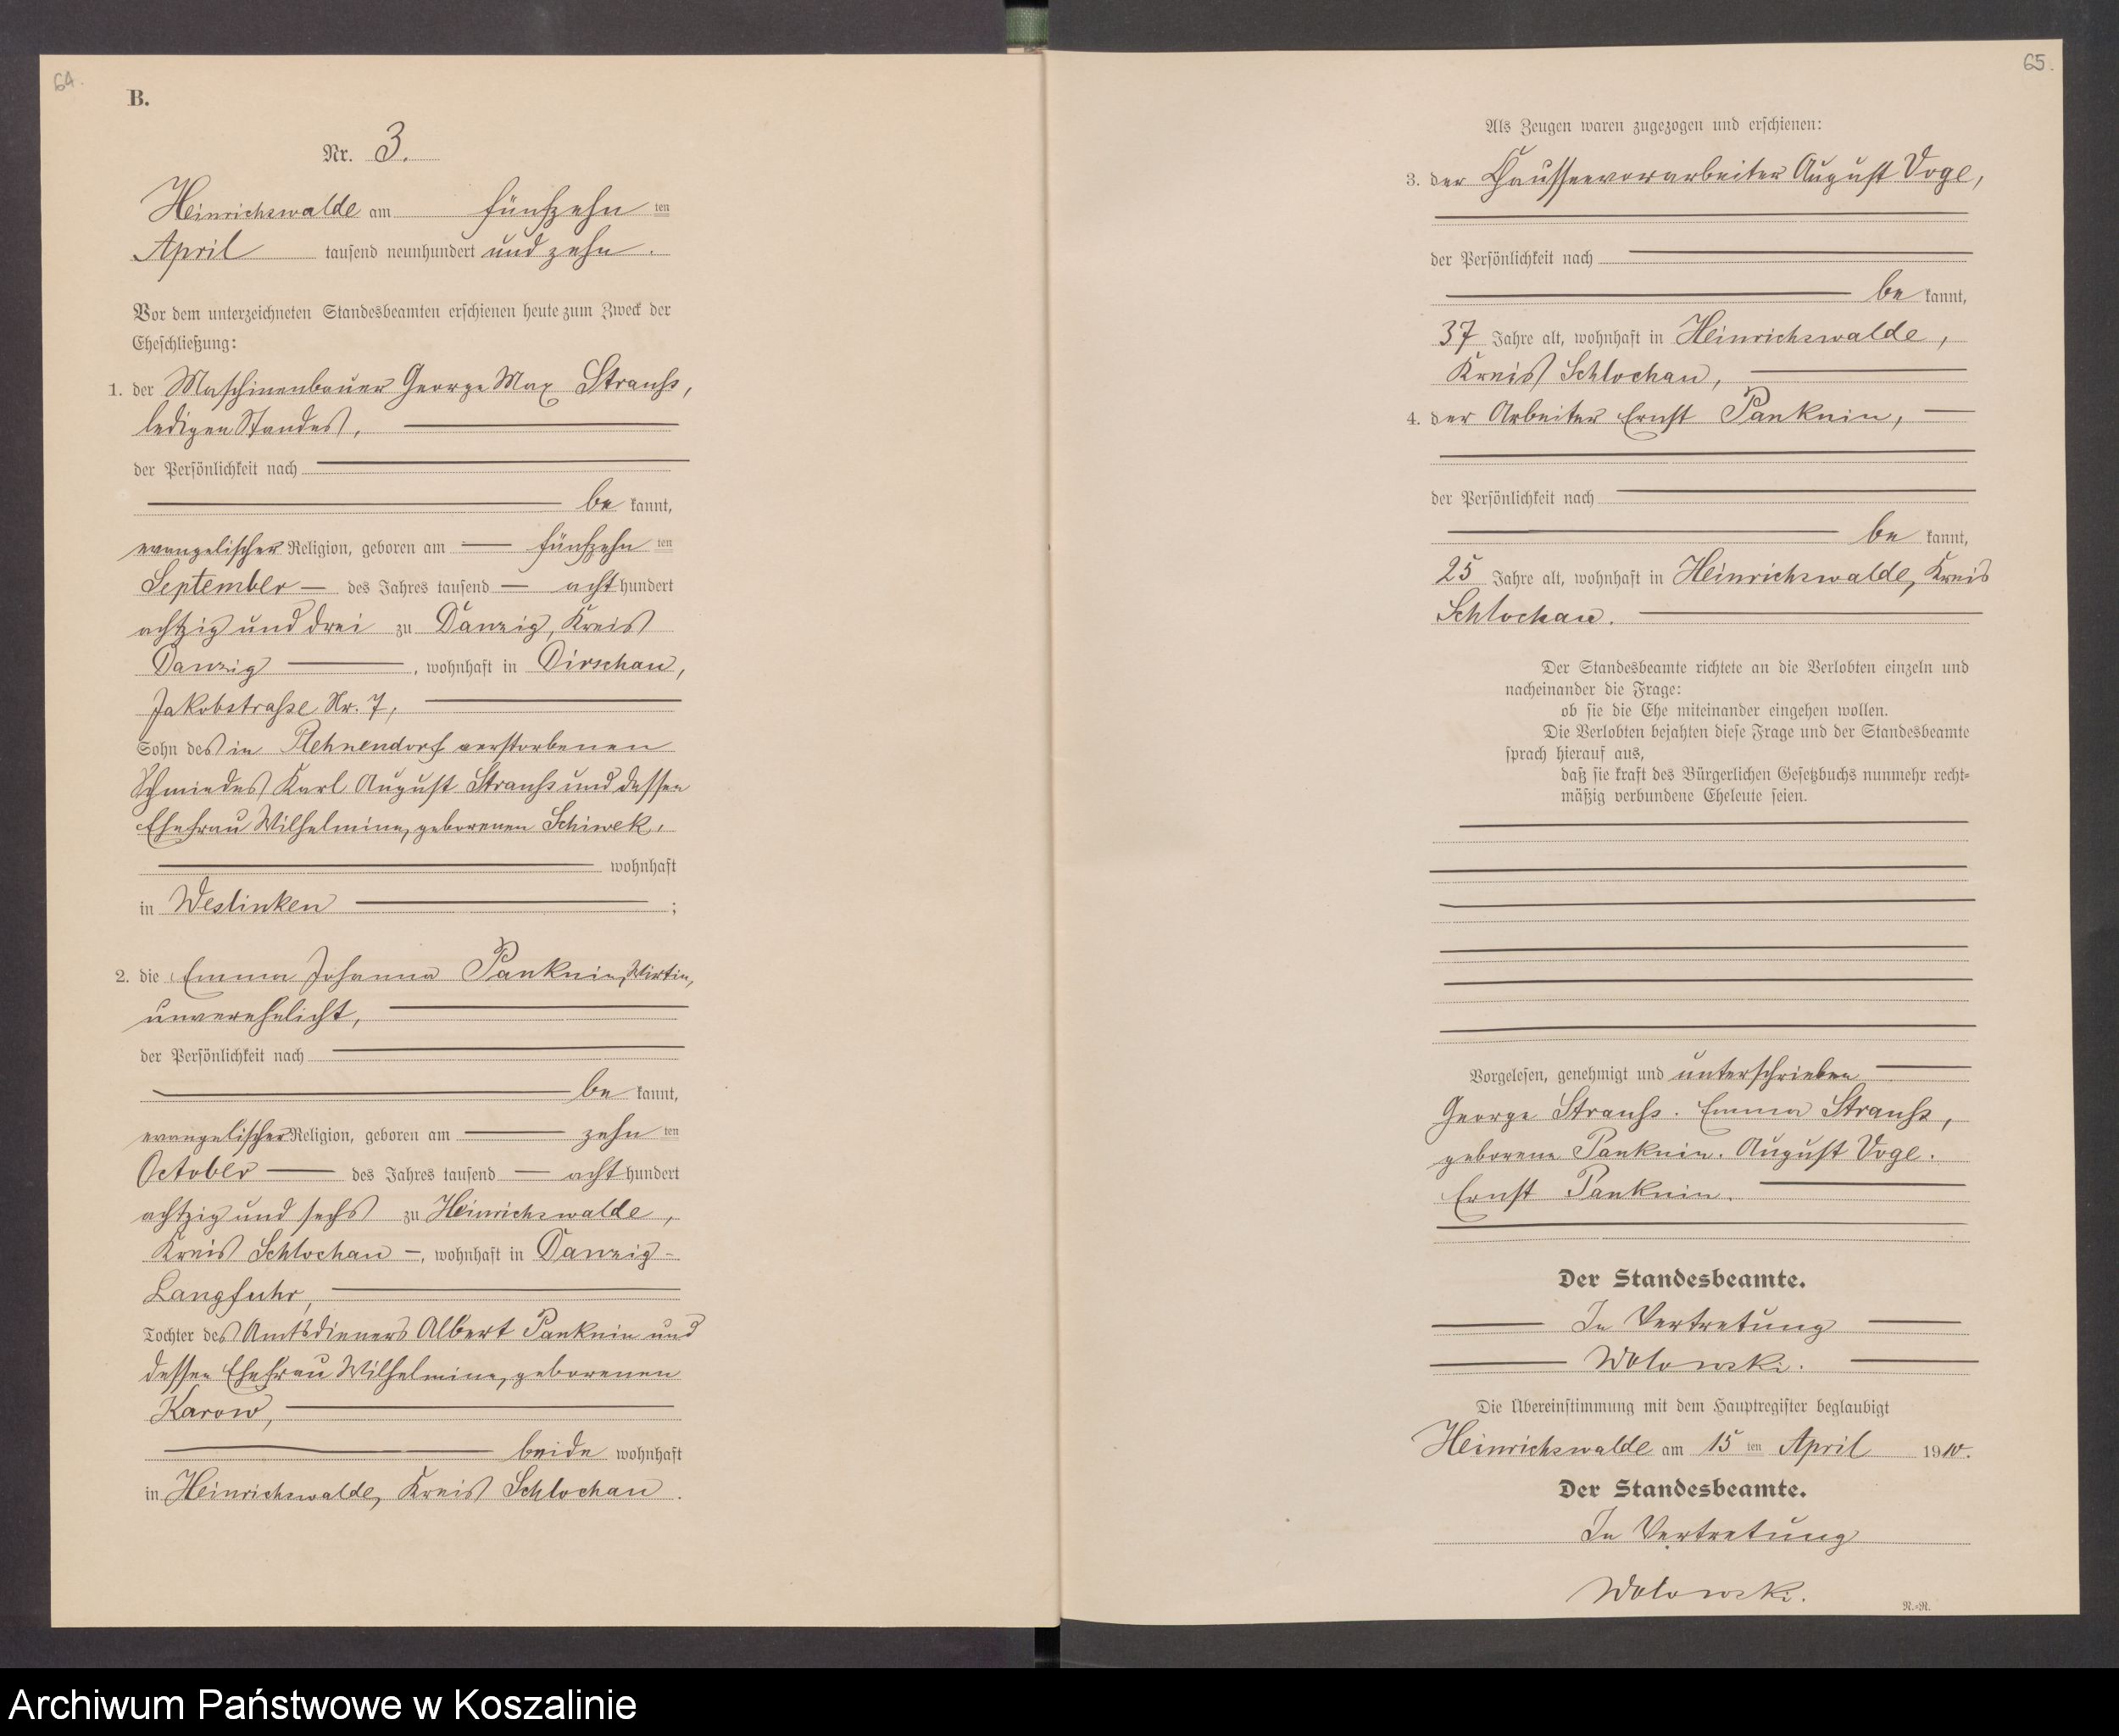 64.
B.
Nr. 3.
Heinrichswalde am fünfzehn ten
April tausend neunhundert und zehn.
Vor dem unterzeichneten Standesbeamten erschienen heute zum Zweck der
Eheschließung:
1. der Maschinenbauer George Max Strauß,
ledigen Standes,
der Persönlichkeit nach
be kannt,
evangelischer Religion, geboren am fünfzehn ten
September des Jahres tausend acht hundert
achtzig und drei zu Danzig, Kreis
Danzig, wohnhaft in Dirschau,
Jakobstraße Nr. 7,
Sohn des in verstorbenen
Schmiedes Karl August Strauß und dessen
Ehefrau Wilhelmine, geborenen Schiwek,
wohnhaft
in Weslinken ;
2. die Emma Johanna Panknin, Wirtin,
unverehelicht,
der Persönlichkeit nach
be kannt,
evangelischer Religion, geboren am zehn ten
October des Jahres tausend acht hundert
achtzig und sechs zu Heinrichswalde,
Kreis Schlochau, wohnhaft in Danzig-
Langfuhr,
Tochter des Amtsdieners Albert Panknin und
dessen Ehefrau Wilhelmine, geborenen
Karow,
beide wohnhaft
in Heinrichswalde, Kreis Schlochau.
65.
Als Zeugen waren zugezogen und erschienen:
3. der Chausseevorarbeiter August Voge,
der Persönlichkeit nach
be kannt,
37 Jahre alt, wohnhaft in Heinrichswalde,
Kreis Schlochau,
4. der Arbeiter Ernst Panknin,
der Persönlichkeit nach
be kannt,
25 Jahre alt, wohnhaft in Heinrichswalde, Kreis
Schlochau.
Der Standesbeamte richtete an die Verlobten einzeln und
nacheinander die Frage:
ob sie die Ehe miteinander eingehen wollen.
Die Verlobten bejahten diese Frage und der Standesbeamte
sprach hierauf aus,
daß sie kraft des Bürgerlichen Gesetzbuchs nunmehr recht-
mäßig verbundene Eheleute seien.
Vorgelesen, genehmigt und unterschrieben
George Strauß. Emma Strauß,
geborene Panknin. August Voge.
Ernst Panknin.
Der Standesbeamte.
In Vertretung
Wolowski.
Die Übereinstimmung mit dem Hauptregister beglaubigt
Heinrichswalde am 15 ten April 1910.
Der Standesbeamte.
In Vertretung
Wolowski.
R.-R.
Archiwum Państwowe w Koszalinie